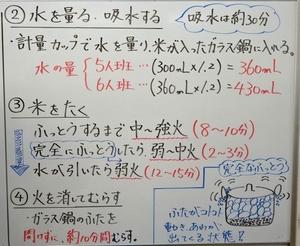 ② 水を量る・吸水する
吸水は約30分
・計量カップで水を量り、米が入ったガラス鍋に入れる。
水の量 5人班…(300mL×1.2)=360mL
6人班…(360mL×1.2)=430mL
③ 米をたく
ふっとうするまで 中〜強火 (8〜10分)
完全にふっとうしたら 弱〜中火 (2〜3分)
水が引いたら 弱火 (12〜15分)
完全なふっとう
④ 火を消してむらす
・ガラス鍋のふたを
開けずに、約10分間むらす。
ふたがコトコト
動き、あわが
出てくる状態